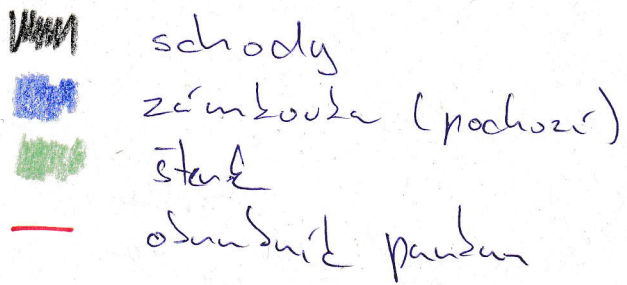 schody
zámkovka (pochozí)
štěrk
obrubník